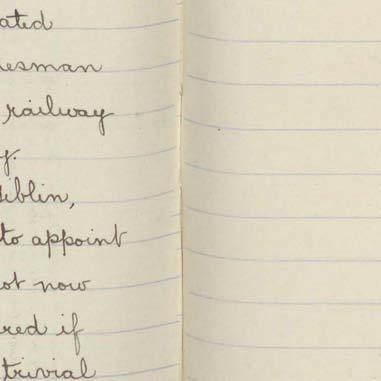 ated
esman
railway
y.
iblin,
to appoint
ot now
red if
trivial